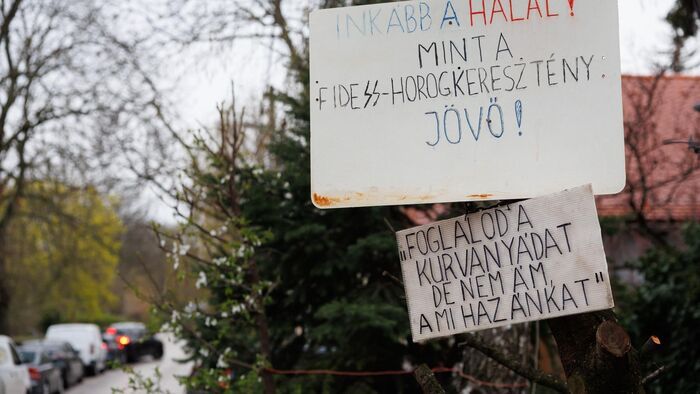 INKÁBB A HALÁL!
MINT A
FIDESS-HOROGKERESZTÉNY
JÖVŐ!
"FOGLALÓD A
KURVANYÁDAT
DE NEM ÁM
A MI HAZÁNKAT"